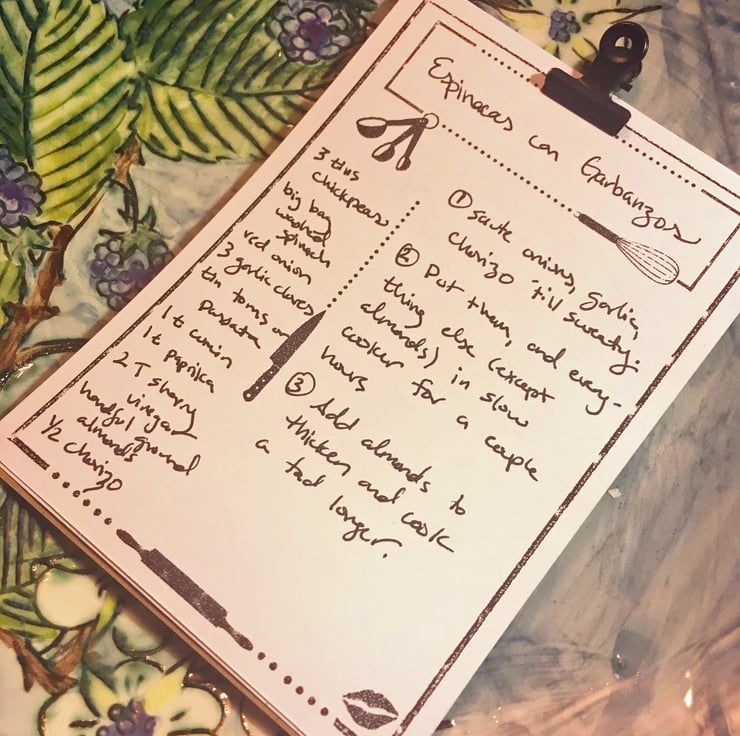 Espinacas con Garbanzos
3 tins
chickpeas
big bag
washed
spinach
red onion
3 garlic cloves
tin toms or
passata
1 t cumin
1 t paprika
2 T sherry
vinegar
handful ground
almonds
1/2 chorizo
① saute onions, garlic,
chorizo 'till sweaty.
② Put them, and every-
thing else (except
almonds) in slow
cooker for a couple
hours
③ Add almonds to
thicken and cook
a tad longer.